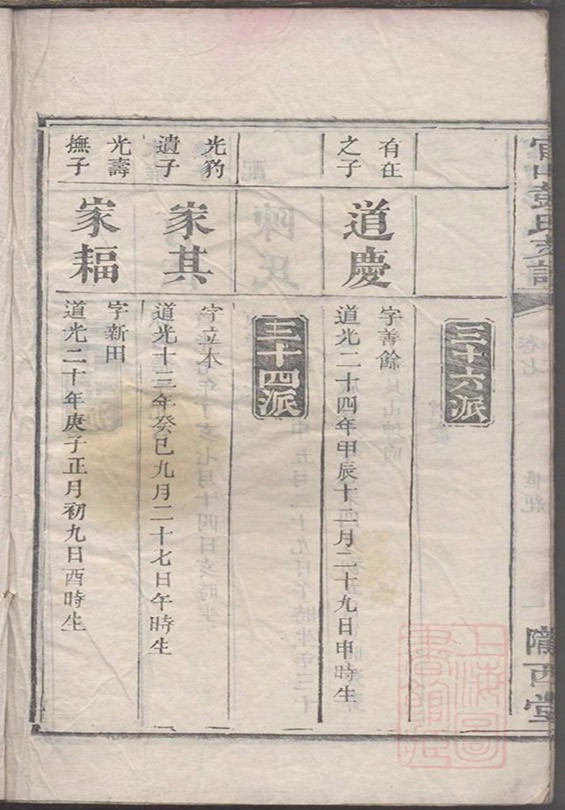 三十六派
有在
之子
道慶
字善餘
道光二十四年甲辰十二月二十九日申時生
三十四派
光豹
遺子
家其
字立本
道光十三年癸巳九月二十七日午時生
光壽
撫子
家福
字新田
道光二十年庚子正月初九日酉時生
彭氏支譜
卷七
隴西堂
上海圖
書館藏